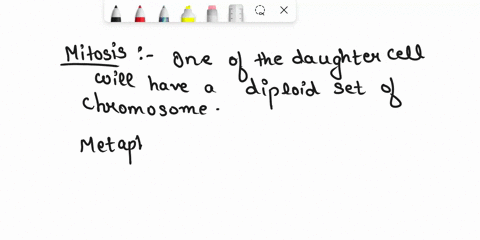 Mitosis :- One of the daughter cell
will have a diploid set of
chromosome.
Metaph